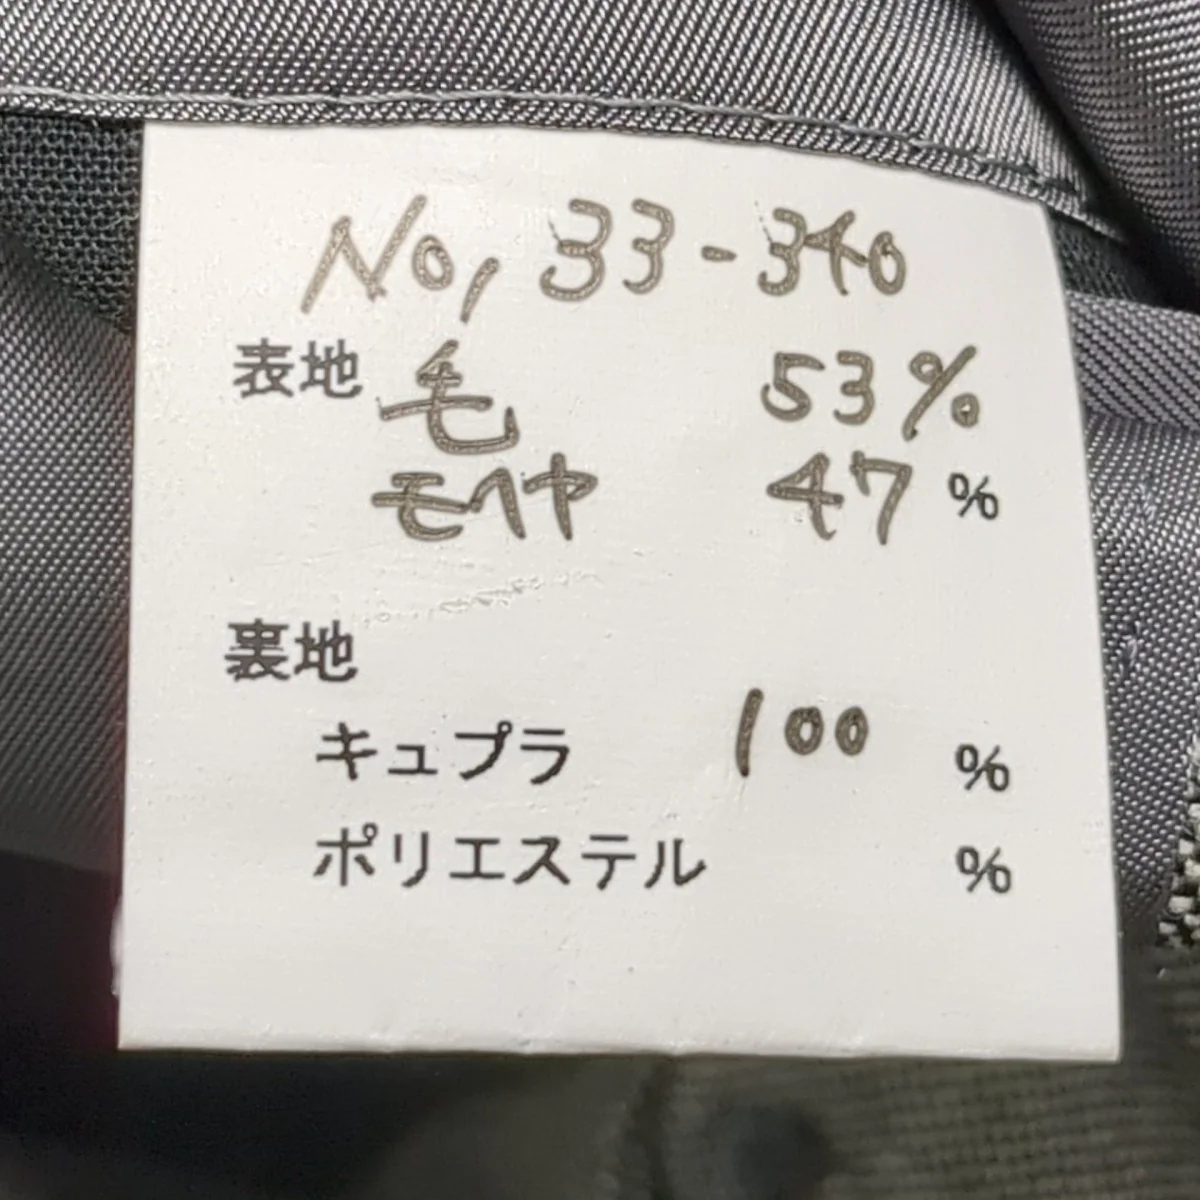 No, 33-340
表地 毛 53%
モヘヤ 47%
裏地
キュプラ 100 %
ポリエステル %